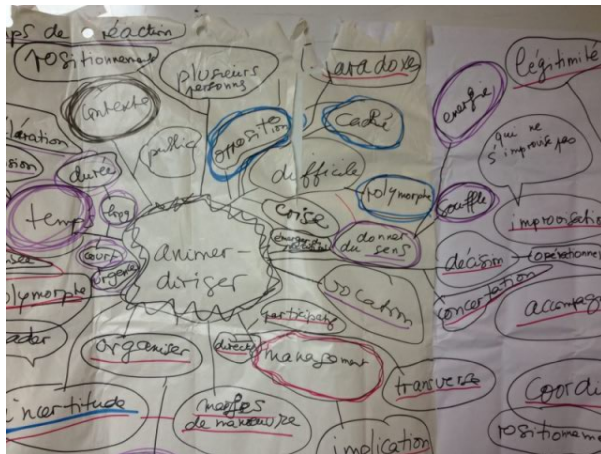 ps de réaction
positionnement
plusieurs
personnes
paradoxe
légitimité
contexte
opposition
caché
énergie
public
qui ne
s'improvise pas
durée
difficile
polymorphe
souffle
temps
long
crise
improvisation
court
urgence
animer-
diriger
donner
du sens
décision
opérationnel
polymorphe
vocation
concertation
accompag
participatif
organiser
directif
management
transverse
coordi
incertitude
marges
de manœuvre
implication
positionneme